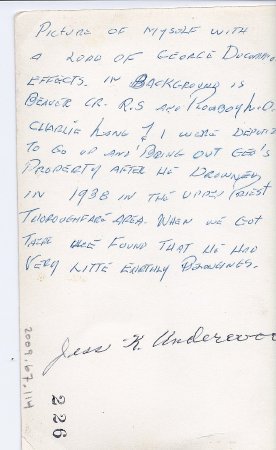 PICTURE OF MYSELF WITH
A LOAD OF GEORGE DUCHARM
EFFECTS. IN BACKGROUND IS
BEAVER CR. R.S AND COWBOY L.O.
CHARLIE LONG & I WERE DEPUTIZ
TO GO UP AND BRING OUT GEO'S
PROPERTY AFTER HE DROWNED
IN 1938 IN THE UPPER PRIEST
THOROUGHFARE AREA. WHEN WE GOT
THERE WE FOUND THAT HE HAD
VERY LITTE EARTHLY BELONGINGS.
Jess K. Underwoo
2009.67.114
226